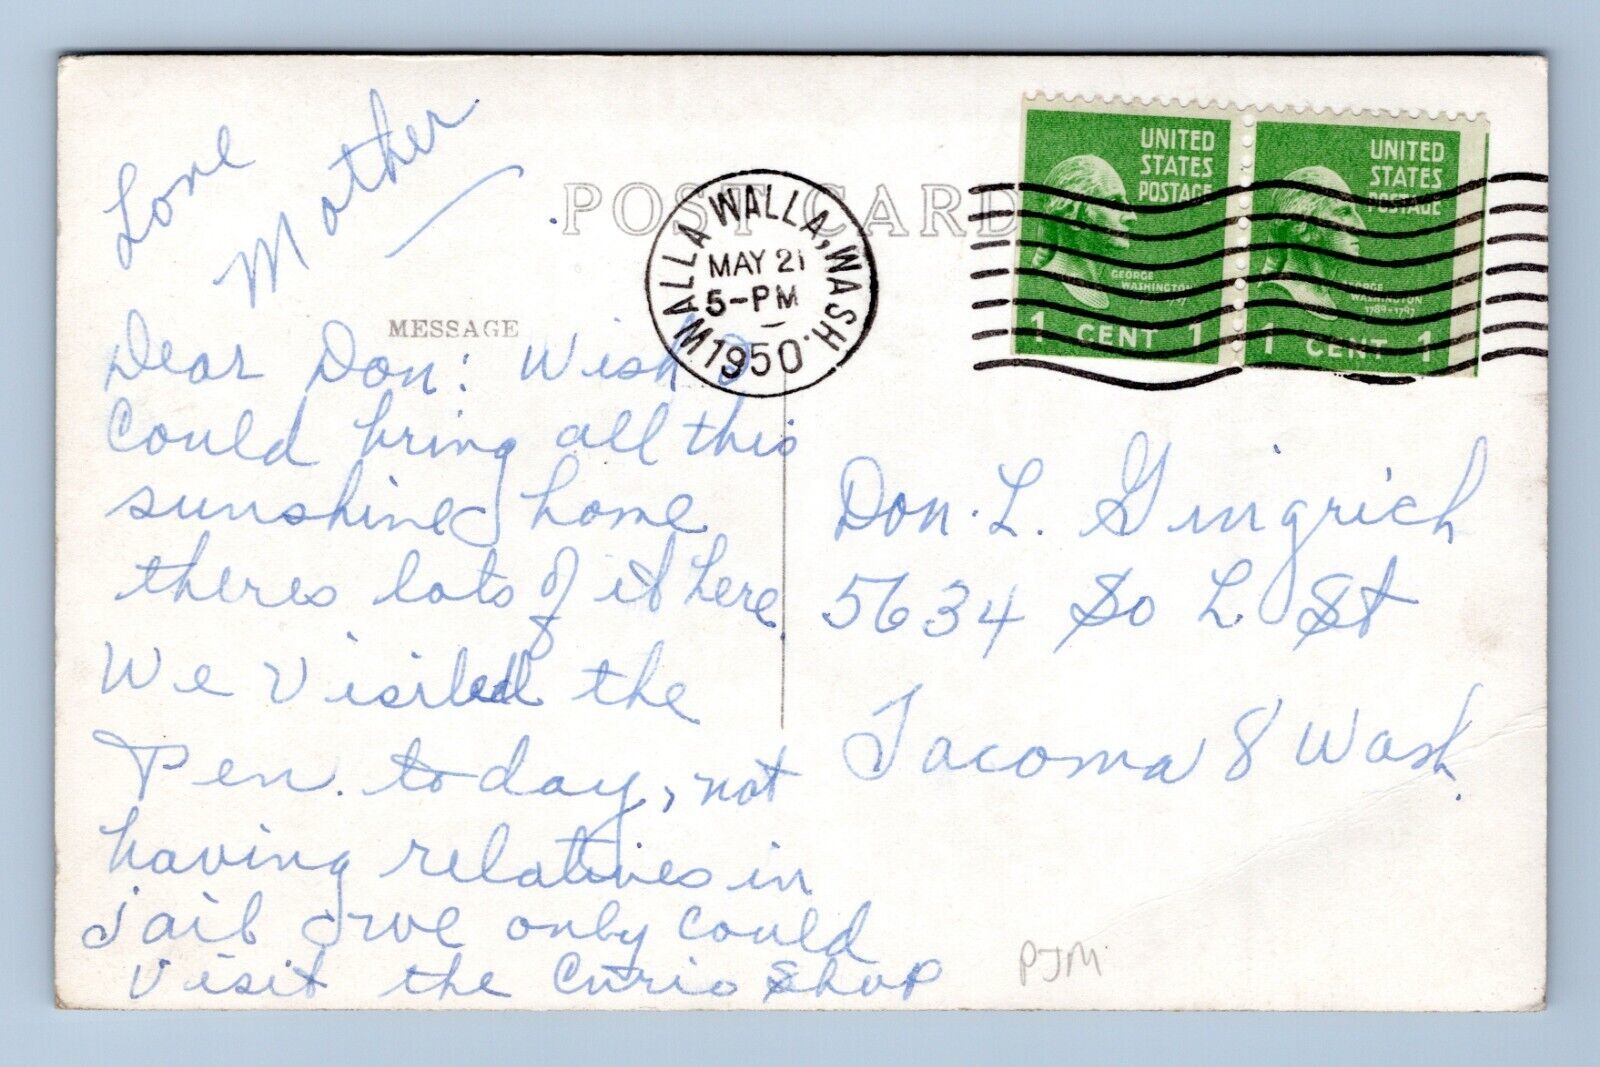 Love
Mother
POST CARD
MESSAGE
WALLA WALLA, WASH.
MAY 21
5-PM
1950
UNITED
STATES
POSTAGE
GEORGE
WASHINGTON
1 CENT 1
UNITED
STATES
POSTAGE
GEORGE
WASHINGTON
1789-1797
1 CENT 1
Dear Don: Wish I
Could bring all this
sunshine home
theres lots of it here.
We Visited the
Pen. to day, not
having relatives in
jail we only could
visit the Curio Shop
Don. L. Gingrich
5634 So L. St
Tacoma 8 Wash.
PJM